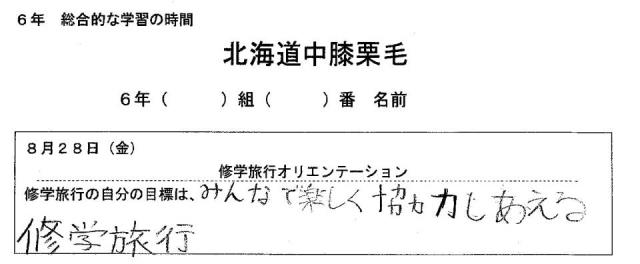 6年 総合的な学習の時間
北海道中膝栗毛
6年（　　　）組（　　　）番 名前
8月28日（金）
修学旅行オリエンテーション
修学旅行の自分の目標は、みんなで楽しく協力しあえる
修学旅行